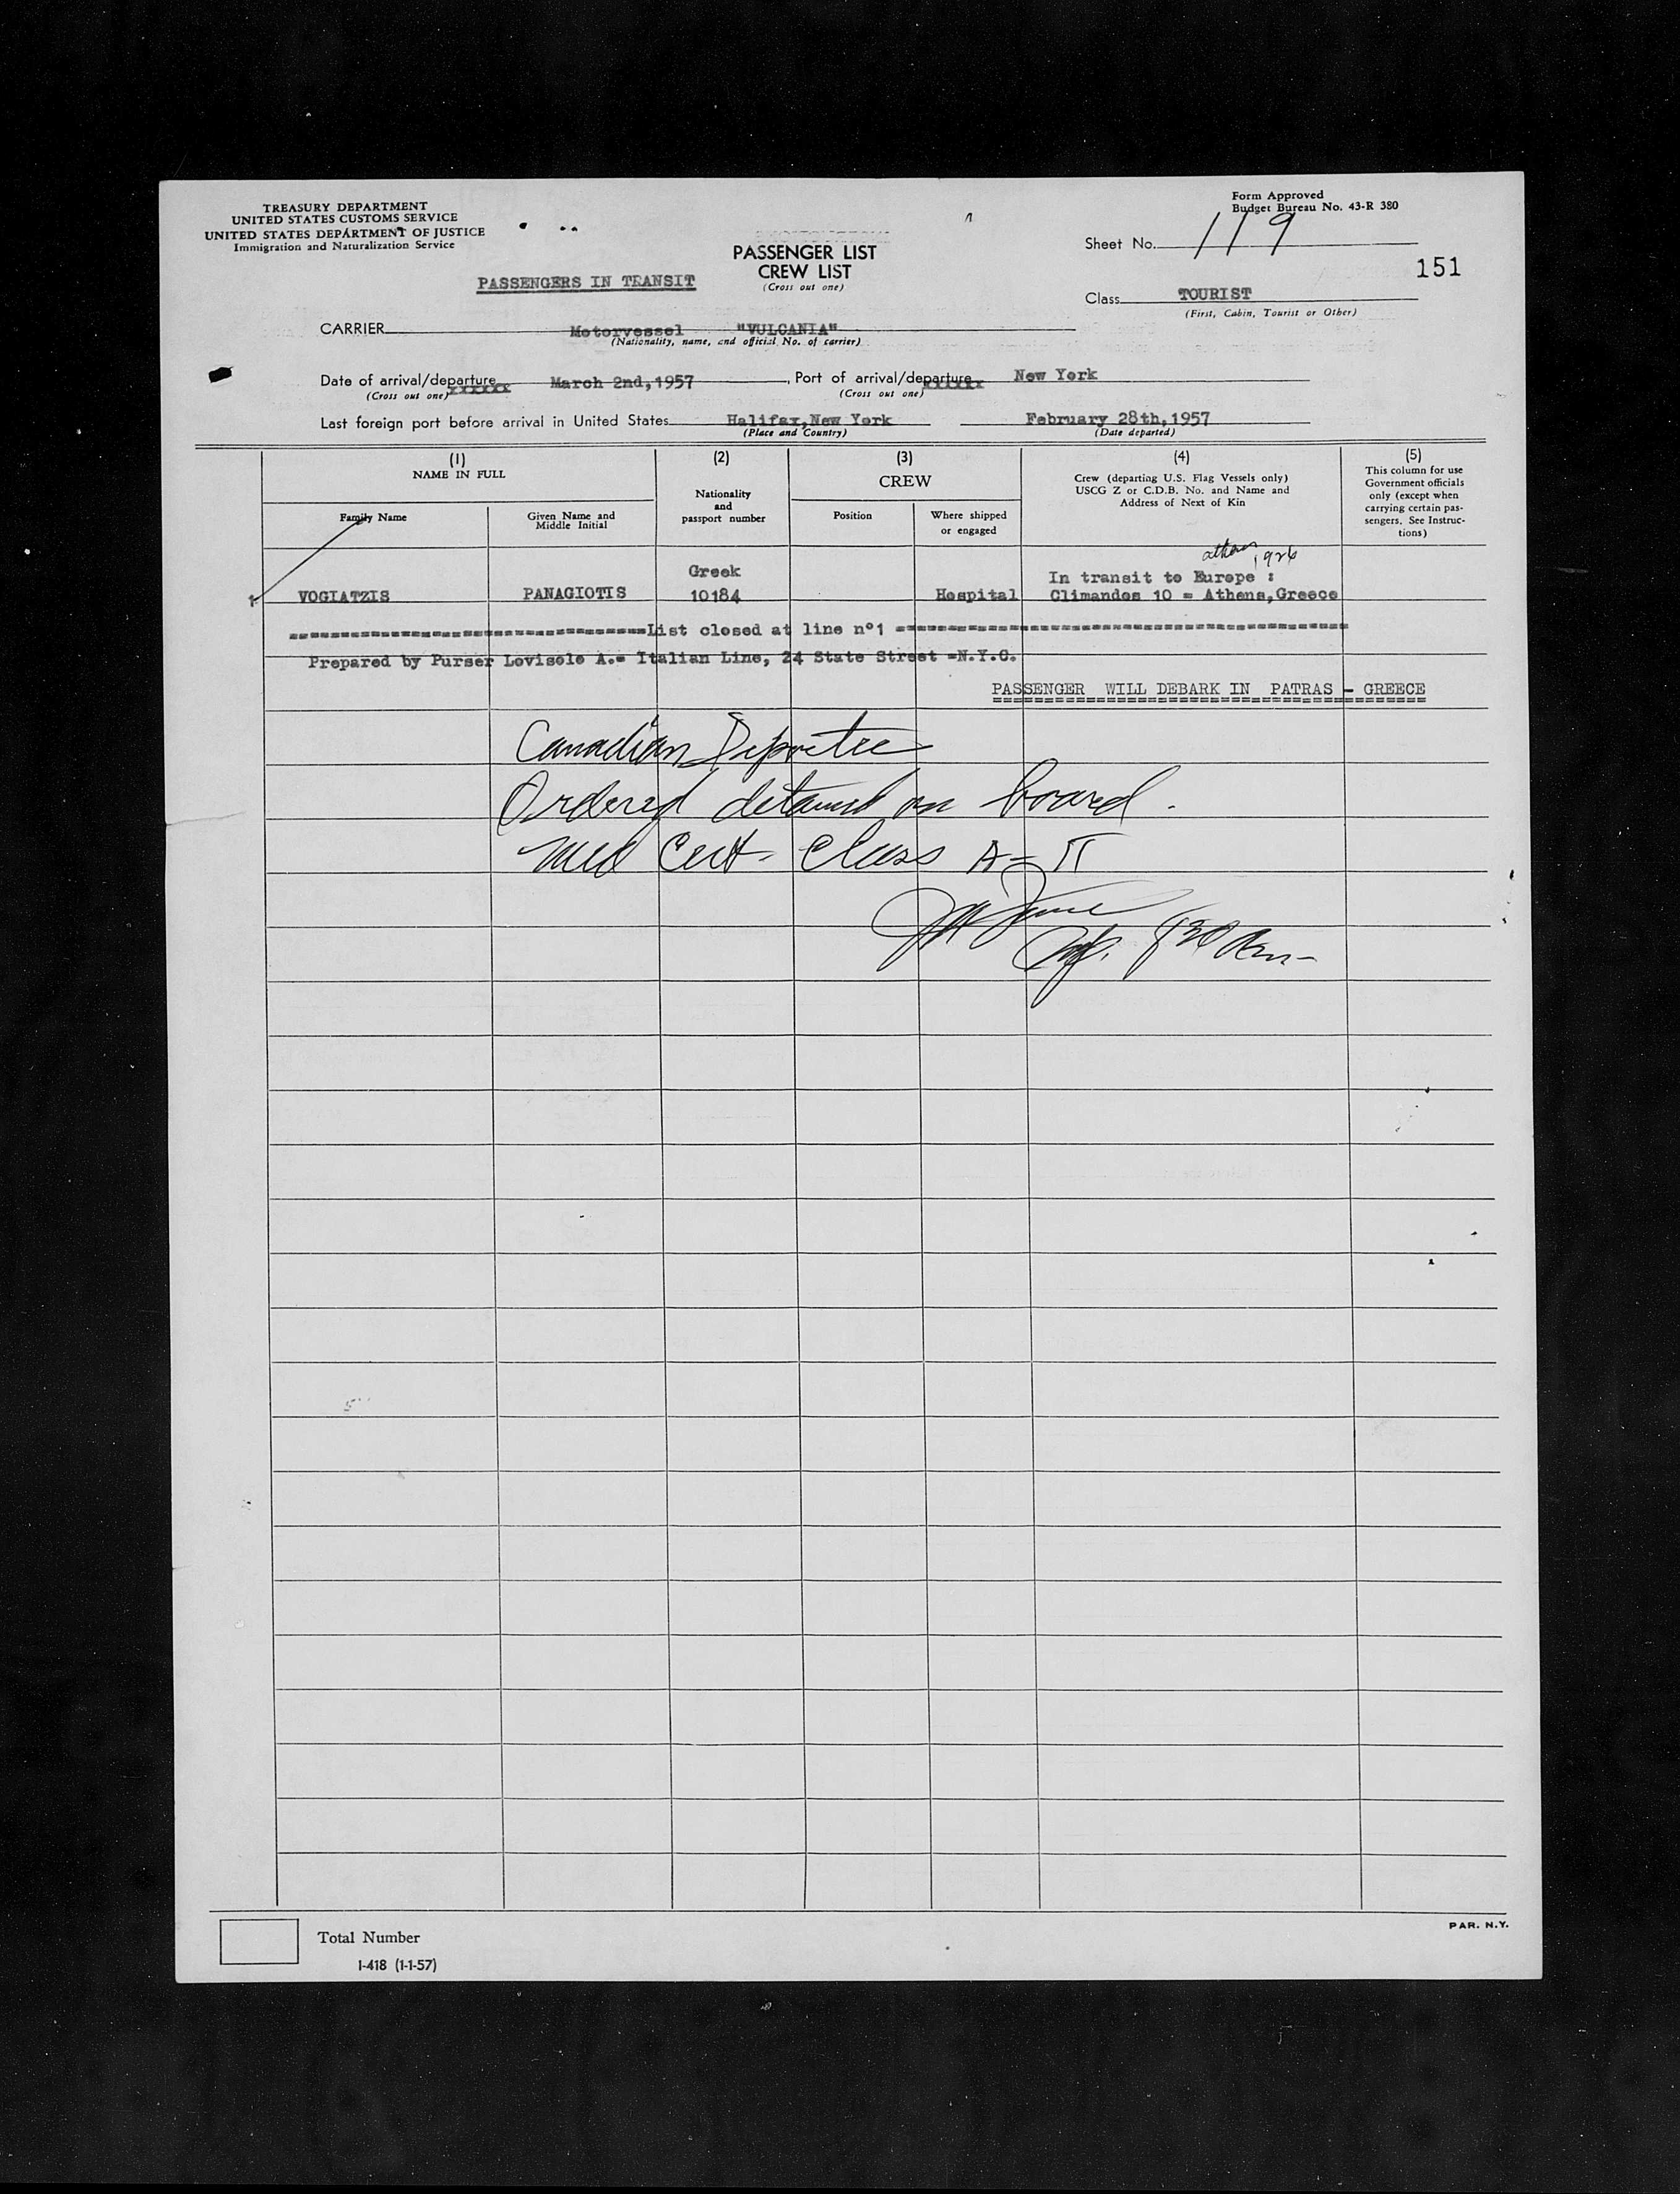 TREASURY DEPARTMENT
UNITED STATES CUSTOMS SERVICE
UNITED STATES DEPARTMENT OF JUSTICE
Immigration and Naturalization Service
Form Approved
Budget Bureau No. 43-R 380
Sheet No. 119
151
PASSENGERS IN TRANSIT
PASSENGER LIST
CREW LIST
(Cross out one)
Class TOURIST
(First, Cabin, Tourist or Other)
CARRIER Motorvessel "VULCANIA"
(Nationality, name, and official No. of carrier)
Date of arrival/departure March 2nd,1957, Port of arrival/departure New York
(Cross out one) (Cross out one)
Last foreign port before arrival in United States Halifax,New York February 28th,1957
(Place and Country) (Date departed)
(1) (2) (3) (4) (5)
NAME IN FULL
Family Name
Given Name and
Middle Initial
Nationality
and
passport number
CREW
Position
Where shipped
or engaged
Crew (departing U.S. Flag Vessels only)
USCG Z or C.D.B. No. and Name and
Address of Next of Kin
This column for use
Government officials
only (except when
carrying certain pas-
sengers. See Instruc-
tions)
athens 1926
Greek In transit to Europe :
1 VOGIATZIS PANAGIOTIS 10184 Hospital Climandos 10 = Athens,Greece
List closed at line nº1
Prepared by Purser Lovisolo A.= Italian Line, 24 State Street =N.Y.C.
PASSENGER WILL DEBARK IN PATRAS - GREECE
Canadian Deportee
Ordered detained on board.
Med Cert. Class A-II
Insp. 830 Am-
Total Number
I-418 (1-1-57)
PAR. N.Y.